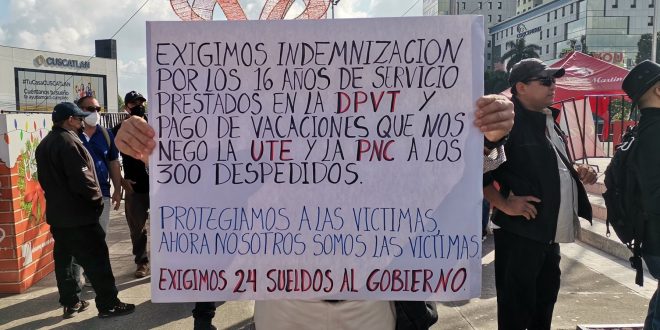 CUSCATLAN
#TuCasaCUSCATLAN
EXIGIMOS INDEMNIZACION
POR LOS 16 AÑOS DE SERVICIO
PRESTADOS EN LA DPVT Y
PAGO DE VACACIONES QUE NOS
NEGO LA UTE Y LA PNC A LOS
300 DESPEDIDOS.
PROTEGIAMOS A LAS VICTIMAS,
AHORA NOSOTROS SOMOS LAS VICTIMAS
EXIGIMOS 24 SUELDOS AL GOBIERNO.
Martin